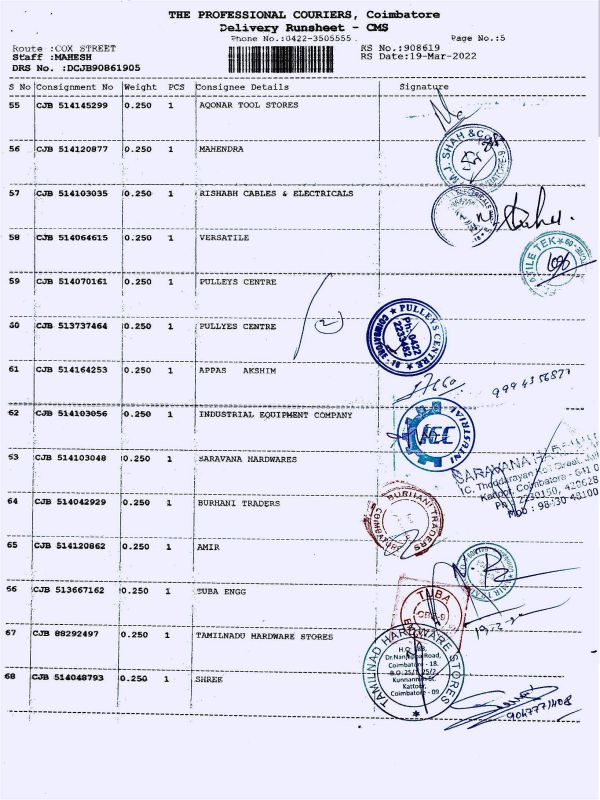 THE PROFESSIONAL COURIERS, Coimbatore
Delivery Runsheet - CMS
Phone No.:0422-3505555
Page No.:5
Route :COX STREET
RS No.:908619
Staff :MAHESH
RS Date:19-Mar-2022
DRS No. :DCJB90861905
S No Consignment No Weight PCS Consignee Details Signature
55 CJB 514145299 0.250 1 AQONAR TOOL STORES
56 CJB 514120877 0.250 1 MAHENDRA
M.J. SHAH & Co
57 CJB 514103035 0.250 1 RISHABH CABLES & ELECTRICALS
58 CJB 514064615 0.250 1 VERSATILE
59 CJB 514070161 0.250 1 PULLEYS CENTRE
60 CJB 513737464 0.250 1 PULLYES CENTRE
2
PULLEYS CENTRE
Ph: 0422
2233482
61 CJB 514164253 0.250 1 APPAS AKSHIM
62 CJB 514103056 0.250 1 INDUSTRIAL EQUIPMENT COMPANY
IEC
63 CJB 514103048 0.250 1 SARAVANA HARDWARES
64 CJB 514042929 0.250 1 BURHANI TRADERS
BURHANI TRADERS
65 CJB 514120862 0.250 1 AMIR
66 CJB 513667162 0.250 1 TUBA ENGG
TUBA
67 CJB 88292497 0.250 1 TAMILNADU HARDWARE STORES
TAMILNAD HARDWARE STORES
Coimbatore - 18.
Kattoor,
Coimbatore - 09
68 CJB 514048793 0.250 1 SHREE
9047771408